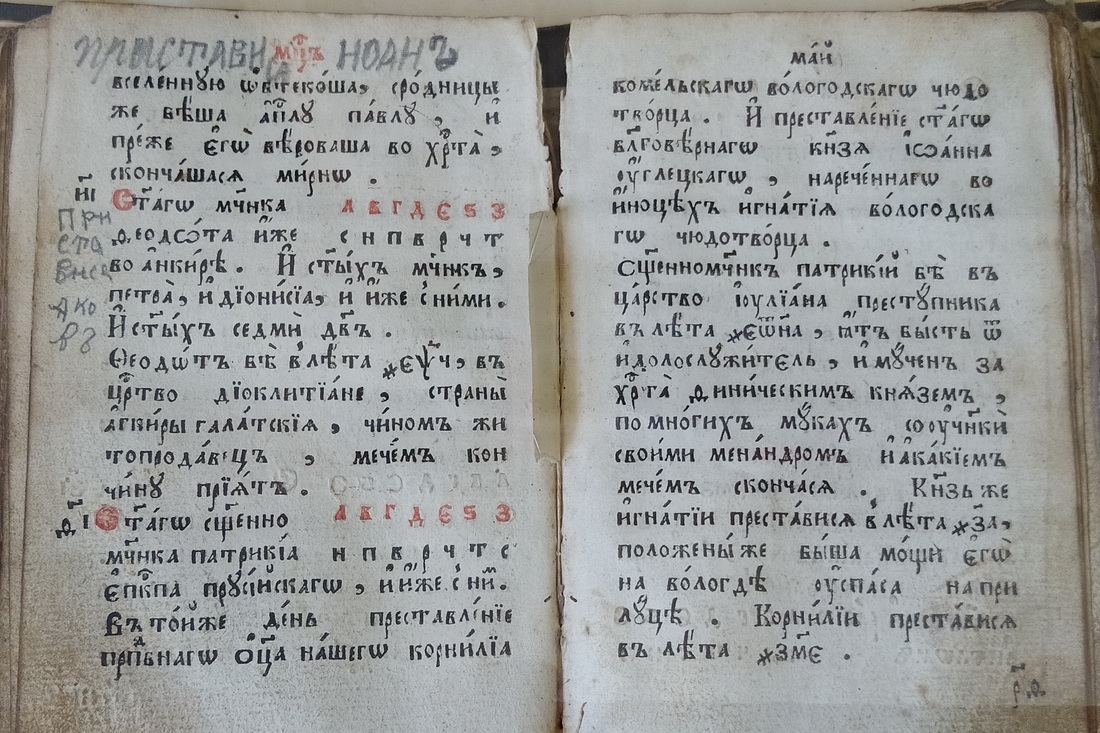 прыставися НОАНЪ
мц҃ъ
вселе́ннꙋю ѡ҆бтеко́ша, сро́дницы
же бѣ́ша а҆пⷭ҇лꙋ па́влꙋ, и҆
пре́же є҆гѡ̀ вѣ́роваша во хрⷭ҇та̀,
сконча́шася ми́рнѡ.
и҃і
Ст҃а́гѡ мч҃нка А В Г Д Є Ѕ З
ѳ҆еодо́та и҆́же с н п в р ч т
во а҆нки́рѣ. И҆ ст҃ы́хъ мч҃нкъ,
петра̀, и҆ дїони́сїа, и҆ и҆̀же с ни́ми.
И҆ ст҃ы́хъ седмѝ дв҃ъ.
Ѳеодо́тъ бѣ̀ в лѣ́та ҂єѱ҃ч, въ
црⷭ҇тво дїоклитїа́не, страны̀
а҆гки́ры гала́тскїѧ, чи́номъ жи
топрода́вецъ, мече́мъ кон
чи́нꙋ прїѧ́тъ.
Ѳ҃і
Ст҃а́гѡ сщ҃е́нно А В Г Д Є Ѕ З
мч҃нка патрикі́а н п в р ч т с
є҆пⷭ҇кпа прꙋсі́йскагѡ, и҆ и҆̀же с ни́м.
Въ то́йже де́нь преставле́нїе
прпⷣбнагѡ ѻ҆ц҃а̀ на́шегѡ корни́лїа
При
ста
виса
Ако
въ
ма́й
коме́льскагѡ во́логодскагѡ чюдо
тво́рца. И҆ преставле́нїе ст҃а́гѡ
бл҃гові́рнагѡ кнѧ́зѧ і҆ѡа́нна
ᲂу҆́глецкагѡ, нарече́ннагѡ во
и҆́ноцѣхъ и҆гна́тїѧ во́логодска
гѡ чюдотво́рца.
Сщ҃е́нномч҃нкъ патрикі́й бѣ̀ въ
ца́рство і҆ꙋлїа́на престꙋ́пника
въ лѣ́та ҂єѿо҃а, ꙗ҆́тъ бы́сть ѿ
и҆́долослꙋжи́тель, и҆ мꙋ́ченъ за
хрⷭ҇та̀ ѳ҆ини́ческимъ кнѧ́земъ,
по мно́гихъ мꙋ́кахъ со ᲂу҆чн҃кѝ
свои́ми мена́ндромъ и҆ а҆ка́кїемъ
мече́мъ сконча́сѧ. Кнѧ́зь же
и҆гна́тїи преста́висѧ в лѣ́та ҂з҃а,
положены́ же бы́ша мо́щи є҆гѡ̀
на во́логдѣ ᲂу҆ спа́са на при
лꙋ́цѣ. Корни́лїи преста́висѧ
въ лѣ́та ҂змє.
р҃ѳ